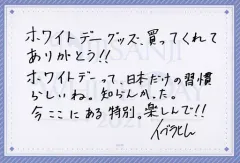 ホワイトデーグッズ、買ってくれて
ありがとう!!
ホワイトデーって、日本だけの習慣
らしいね。知らんかった。
今ここにある特別。楽しんで!!
イブラヒム